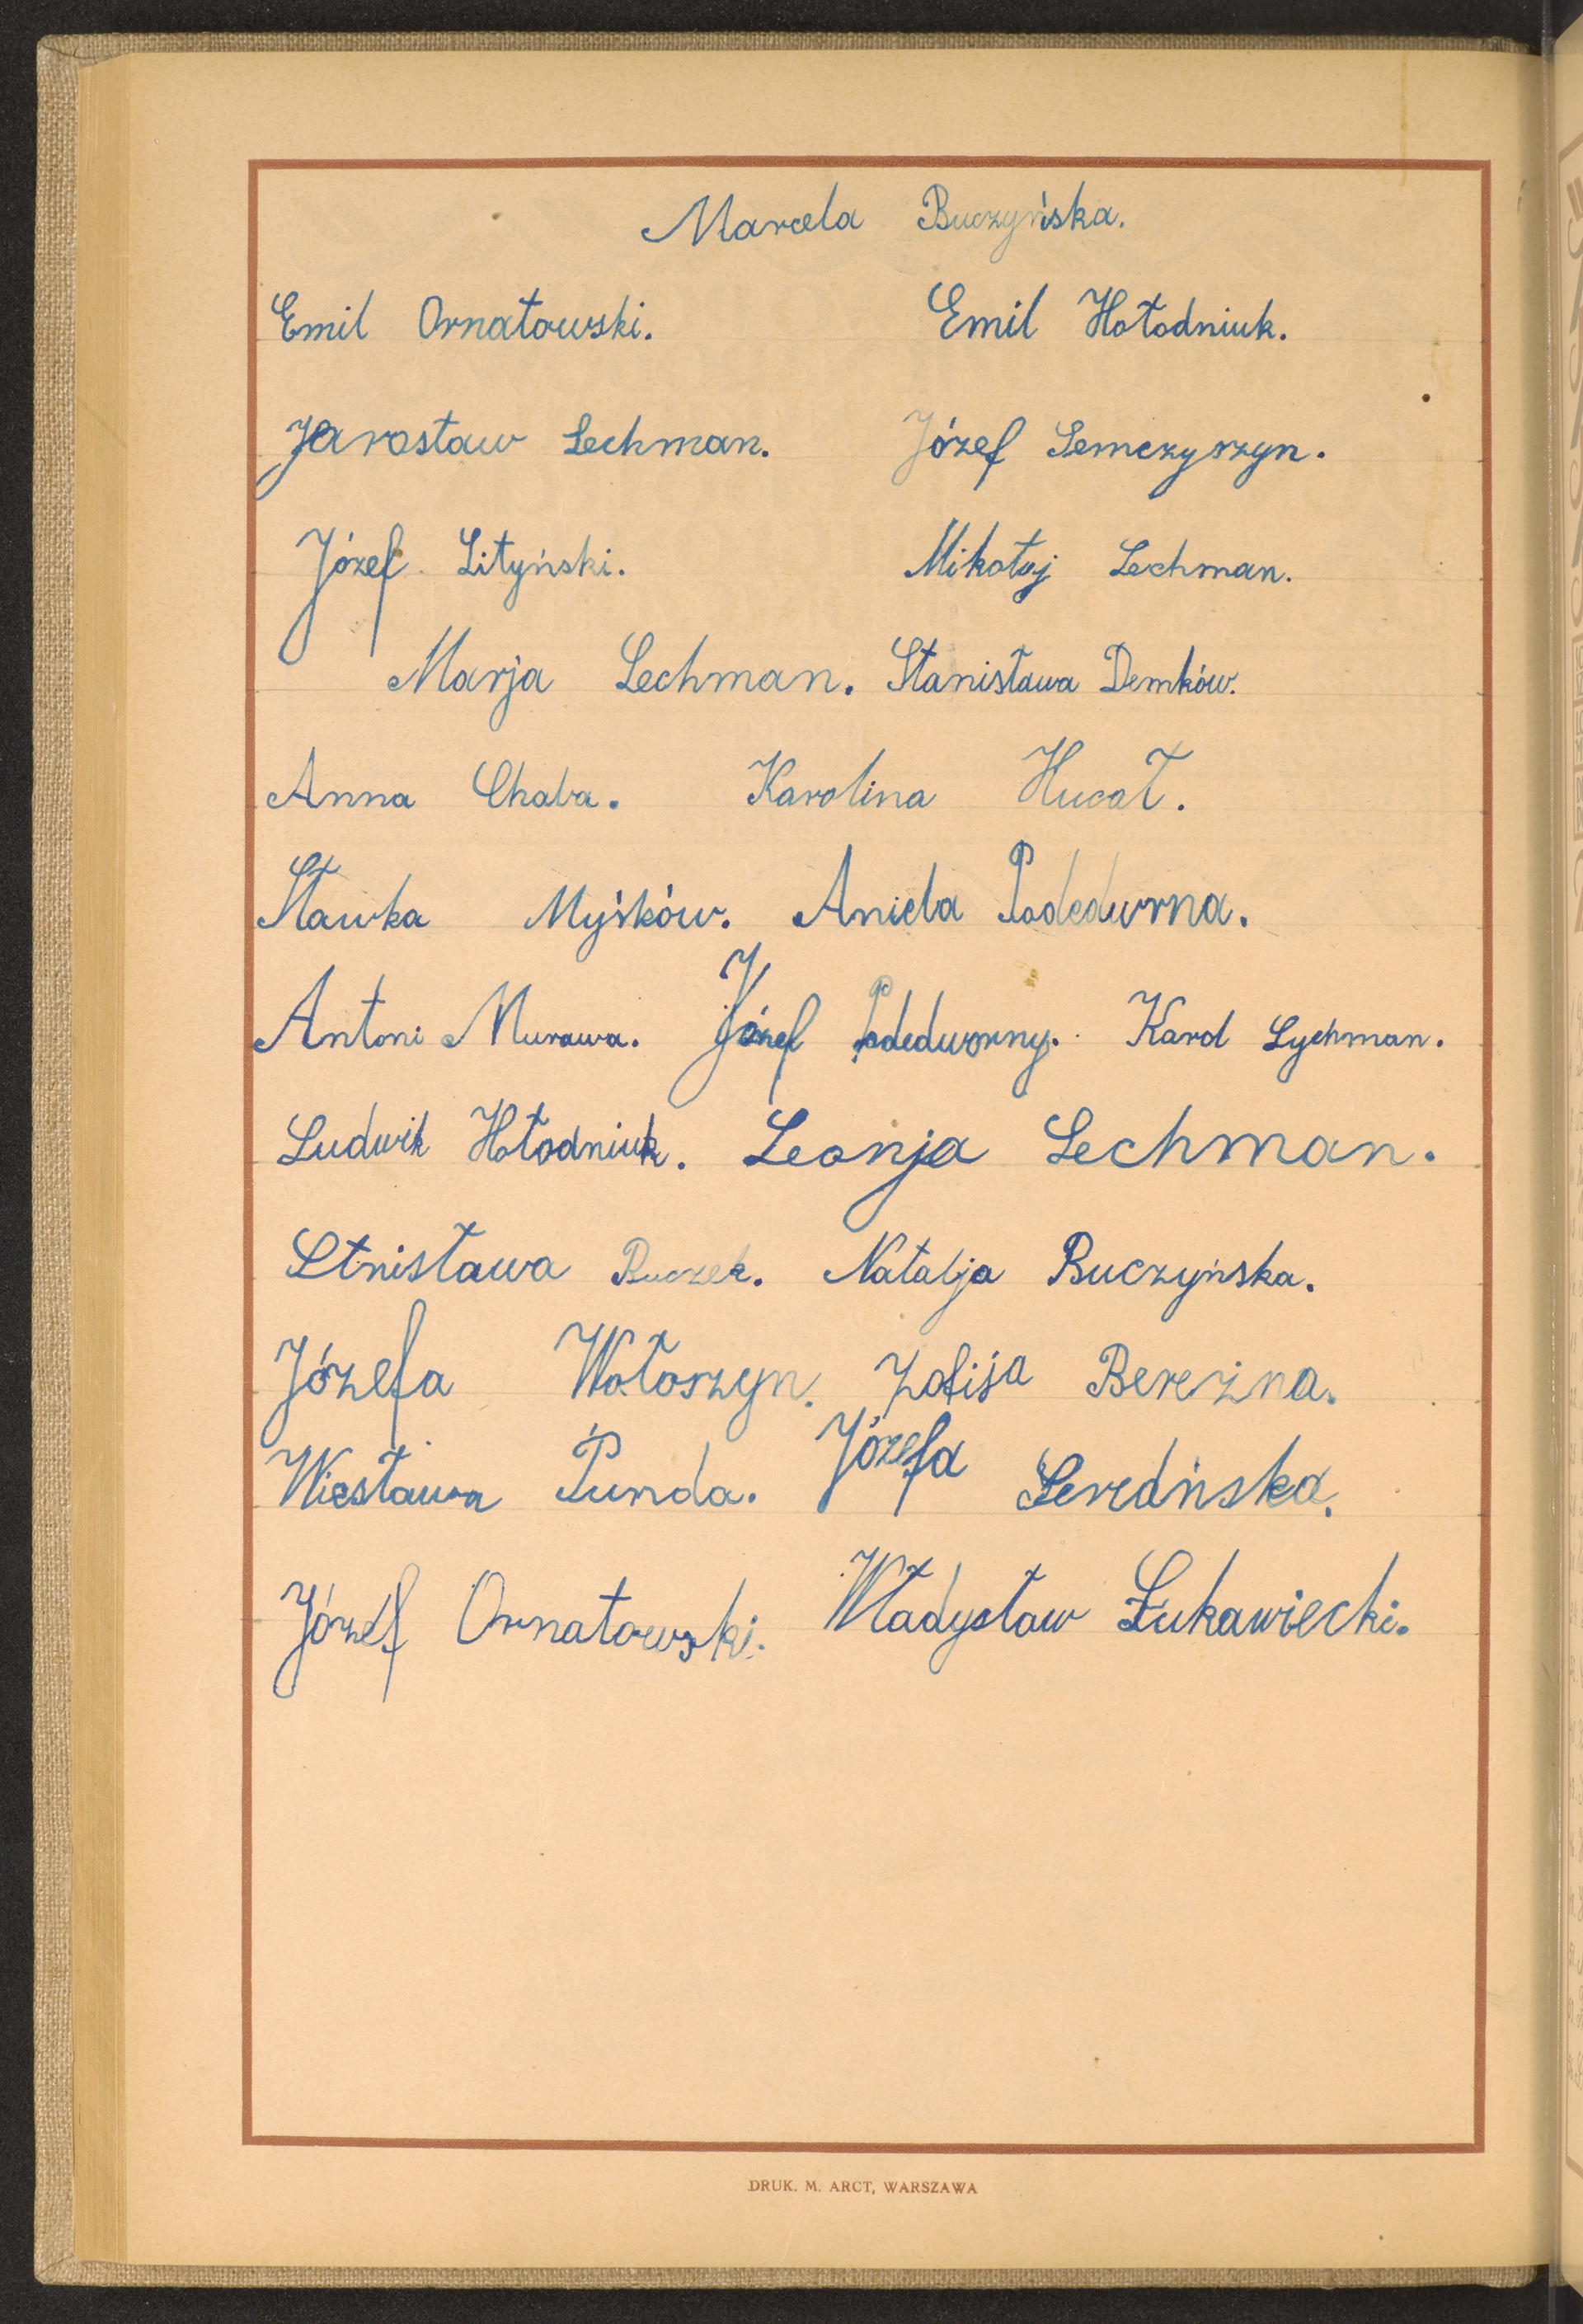 Marcela Buczyńska.
Emil Ornatowski. Emil Hołodniuk.
Jarosław Lechman. Józef Semczyszyn.
Józef Lityński. Mikołaj Lechman.
Marja Lechman. Stanisława Demków.
Anna Chaba. Karolina Hucał.
Sławka Myśków. Aniela Podedworna.
Antoni Murawa. Józef Podedworny. Karol Lychman.
Ludwik Hołodniuk. Leonja Lechman.
Stnisława Buczek. Natalja Buczyńska.
Józefa Wołoszyn. Zofija Bereżna.
Wiesława Punda. Józefa
Józef Ornatowski. Władysław Łukawiecki.
DRUK. M. ARCT, WARSZAWA